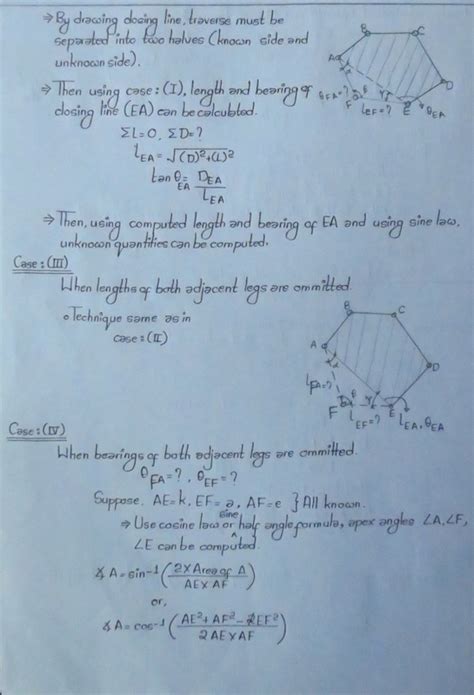 ⇒ By drawing closing line, traverse must be
separated into two halves (known side and
unknown side).
⇒ Then using case: (I), length and bearing of
closing line (EA) can be calculated.
ΣL=0, ΣD=?
L_EA = √(D)²+(L)²
tan θ_EA = D_EA / L_EA
⇒ Then, using computed length and bearing of EA and using sine law,
unknown quantities can be computed.
A
B
C
D
E
F
θ_FA=?
L_EF=?
θ_EA
Case: (III)
When lengths of both adjacent legs are ommitted.
∘ Technique same as in
case: (II)
A
B
C
D
E
F
L_FA=?
L_EF=?
L_EA, θ_EA
Case: (IV)
When bearings of both adjacent legs are ommitted.
θ_FA=?, θ_EF=?
Suppose, AE=k, EF=a, AF=e } All known.
⇒ Use cosine law or sine half angle formula, apex angles ∠A, ∠F,
∠E can be computed.
∡A = sin⁻¹ (2×Area of A / AE×AF)
or,
∡A = cos⁻¹ (AE²+AF²-2EF² / 2AE×AF)